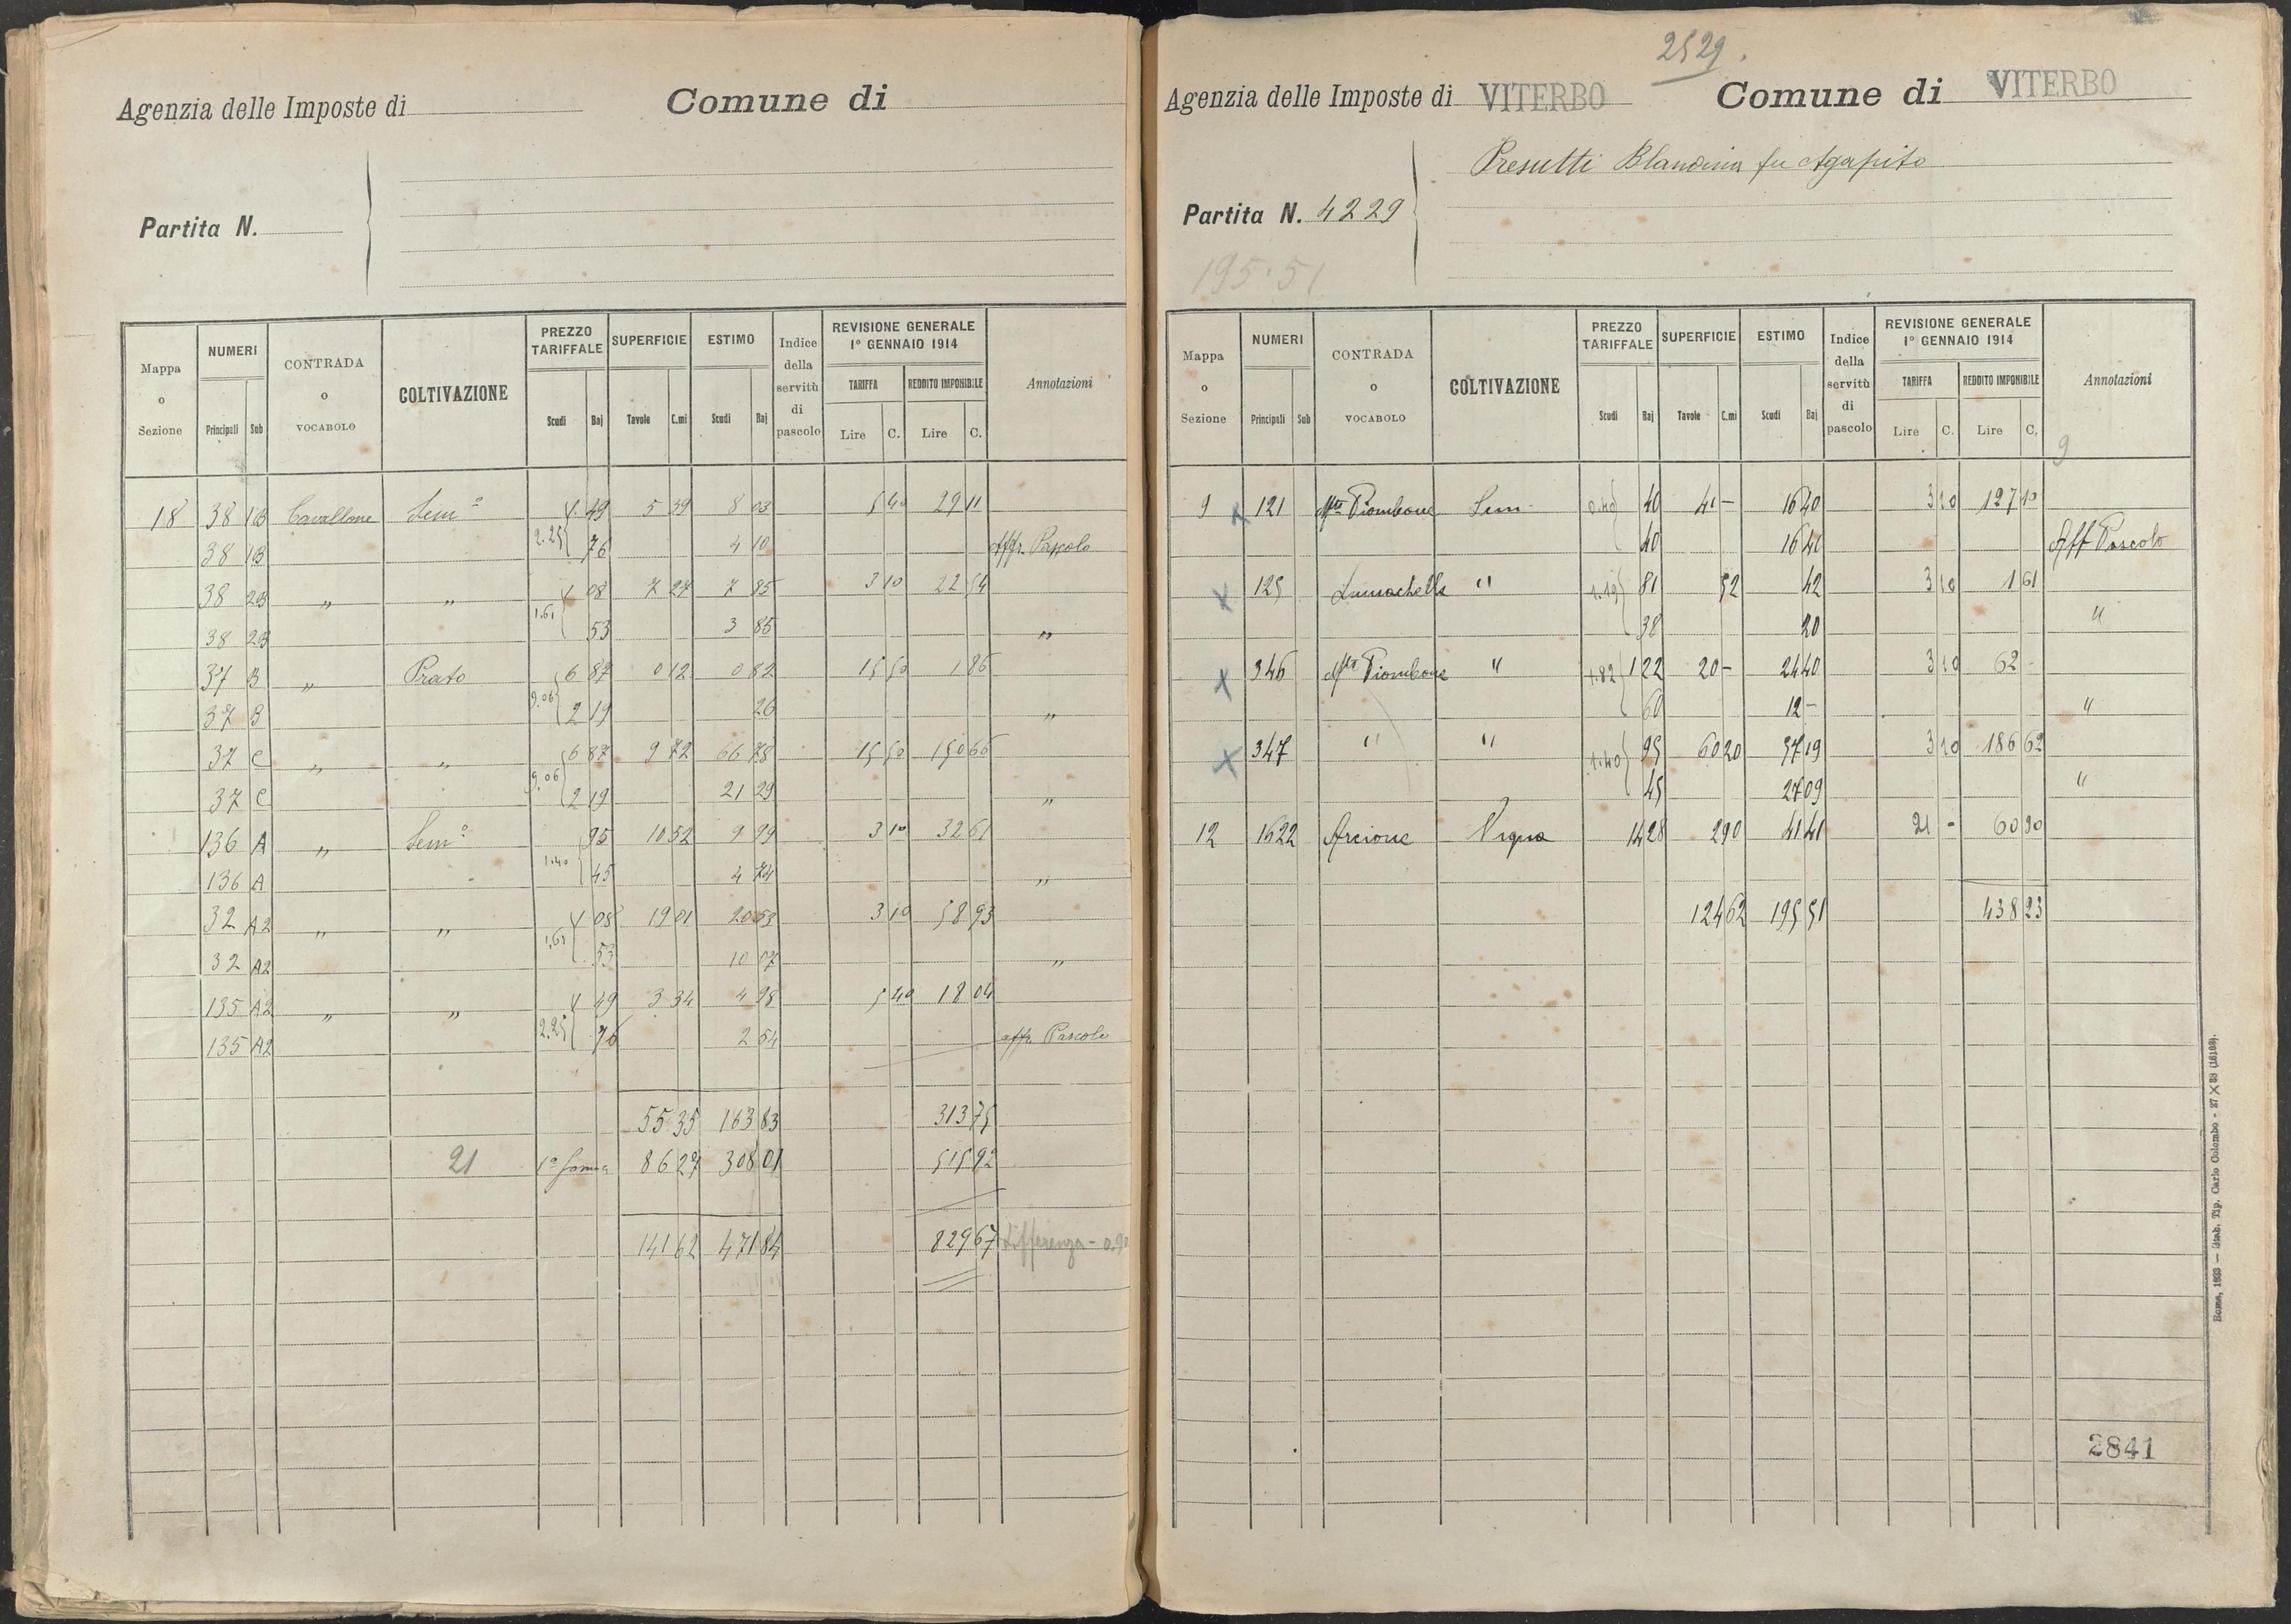 Agenzia delle Imposte di
Comune di
Partita N.
Mappa o Sezione | NUMERI Principali Sub | CONTRADA o VOCABOLO | COLTIVAZIONE | PREZZO TARIFFALE Scudi Baj | SUPERFICIE Tavole C.mi | ESTIMO Scudi Baj | Indice della servitù di pascolo | REVISIONE GENERALE 1º GENNAIO 1914 TARIFFA Lire C. REDDITO IMPONIBILE Lire C. | Annotazioni
18 38 1B Cavallone Sem.º 1 49 5 39 8 03 5 40 29 11
38 1B 2.25 76 4 10 Affr. Pascolo
38 2B " " 1 08 7 27 7 85 3 10 22 54
38 2B 1.61 53 3 85 "
37 B " Prato 6 87 0 12 0 82 15 50 1 86
37 B 9.06 2 19 26 "
37 C " " 6 87 9 72 66 78 15 50 150 66
37 C 9.06 2 19 21 29 "
136 A " Sem.º 95 10 52 9 99 3 10 32 61
136 A 1.40 45 4 74 "
32 A2 " " 1 08 19 01 20 53 3 10 58 93
32 A2 1.61 53 10 07 "
135 A2 " " 1 49 3 34 4 98 5 40 18 04
135 A2 2.25 76 2 54 affr. Pascolo
55 35 163 83 313 75
21 1ª somma 86 27 308 01 515 92
141 62 471 84 829 67 differenza - 0.90
2529.
Agenzia delle Imposte di VITERBO
Comune di VITERBO
Presutti Blandina fu Agapito
Partita N. 4229
195.51
Mappa o Sezione | NUMERI Principali Sub | CONTRADA o VOCABOLO | COLTIVAZIONE | PREZZO TARIFFALE Scudi Baj | SUPERFICIE Tavole C.mi | ESTIMO Scudi Baj | Indice della servitù di pascolo | REVISIONE GENERALE 1º GENNAIO 1914 TARIFFA Lire C. REDDITO IMPONIBILE Lire C. | Annotazioni
9
9 x 121 Mte Piombone Sem. 0.80 40 41 - 16 40 3 10 127 10
40 16 40 Aff Pascolo
x 125 Lumachella " 1.19 81 52 42 3 10 1 61
38 20 "
x 346 Mte Piombone " 1.82 1 22 20 - 24 40 3 10 62 -
60 12 - "
x 347 " " 1.40 95 60 20 57 19 3 10 186 62
45 27 09 "
12 1622 Arcione Vigna 14 28 2 90 41 41 21 - 60 90
124 62 195 51 438 23
2841
Roma, 1923 — Stab. Tip. Carlo Colombo - 27 X 38 (16103).